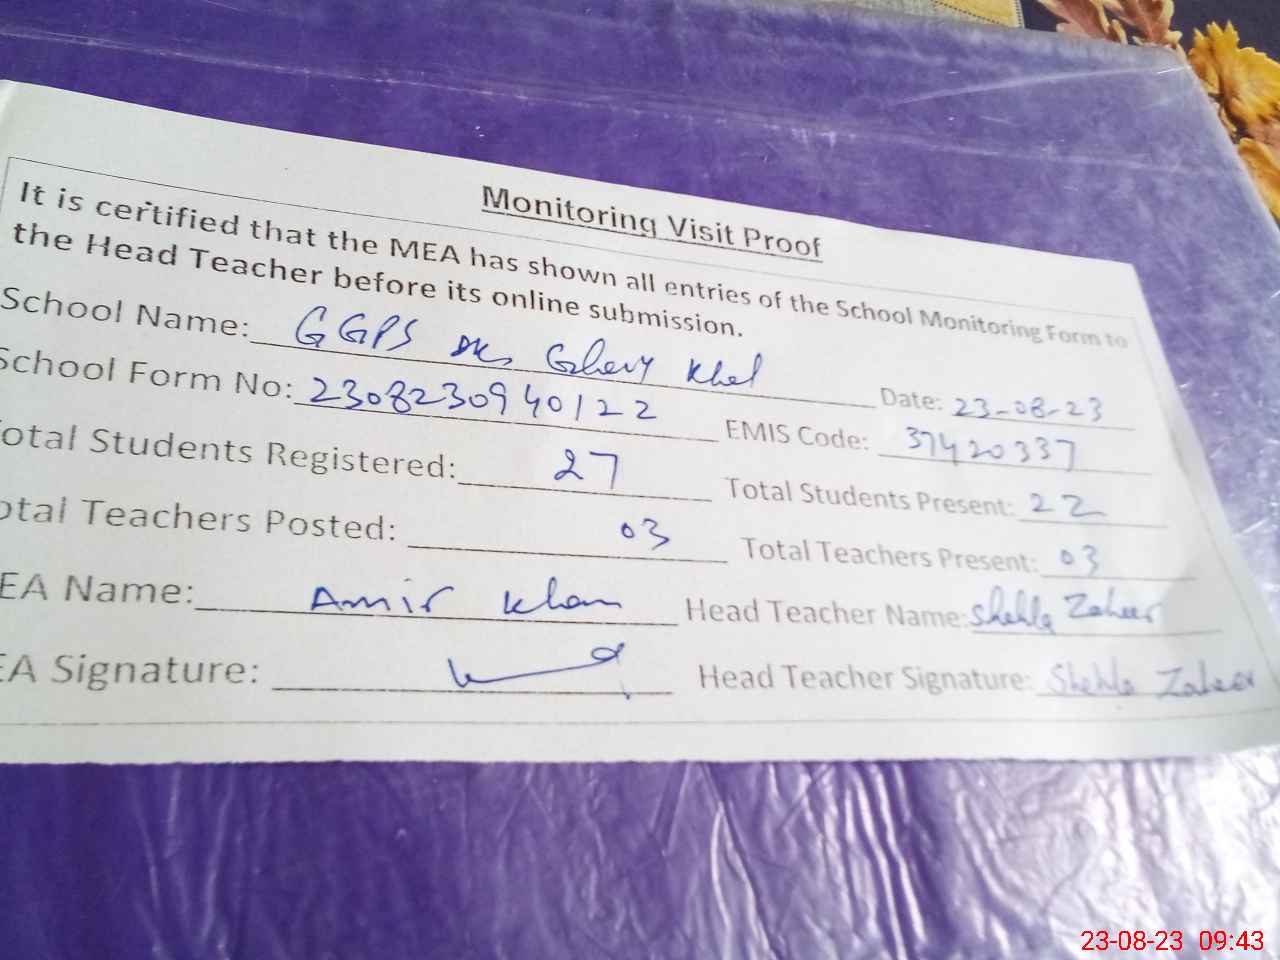 Monitoring Visit Proof
It is certified that the MEA has shown all entries of the School Monitoring Form to
the Head Teacher before its online submission.
School Name: GGPS Khel Date: 23-08-23
School Form No: 2308230940122 EMIS Code: 37420337
otal Students Registered: 27 Total Students Present: 22
otal Teachers Posted: 03 Total Teachers Present: 03
EA Name: Amir Khan Head Teacher Name: Shehla Zaheer
EA Signature: Head Teacher Signature: Shehla Zaheer
23-08-23 09:43